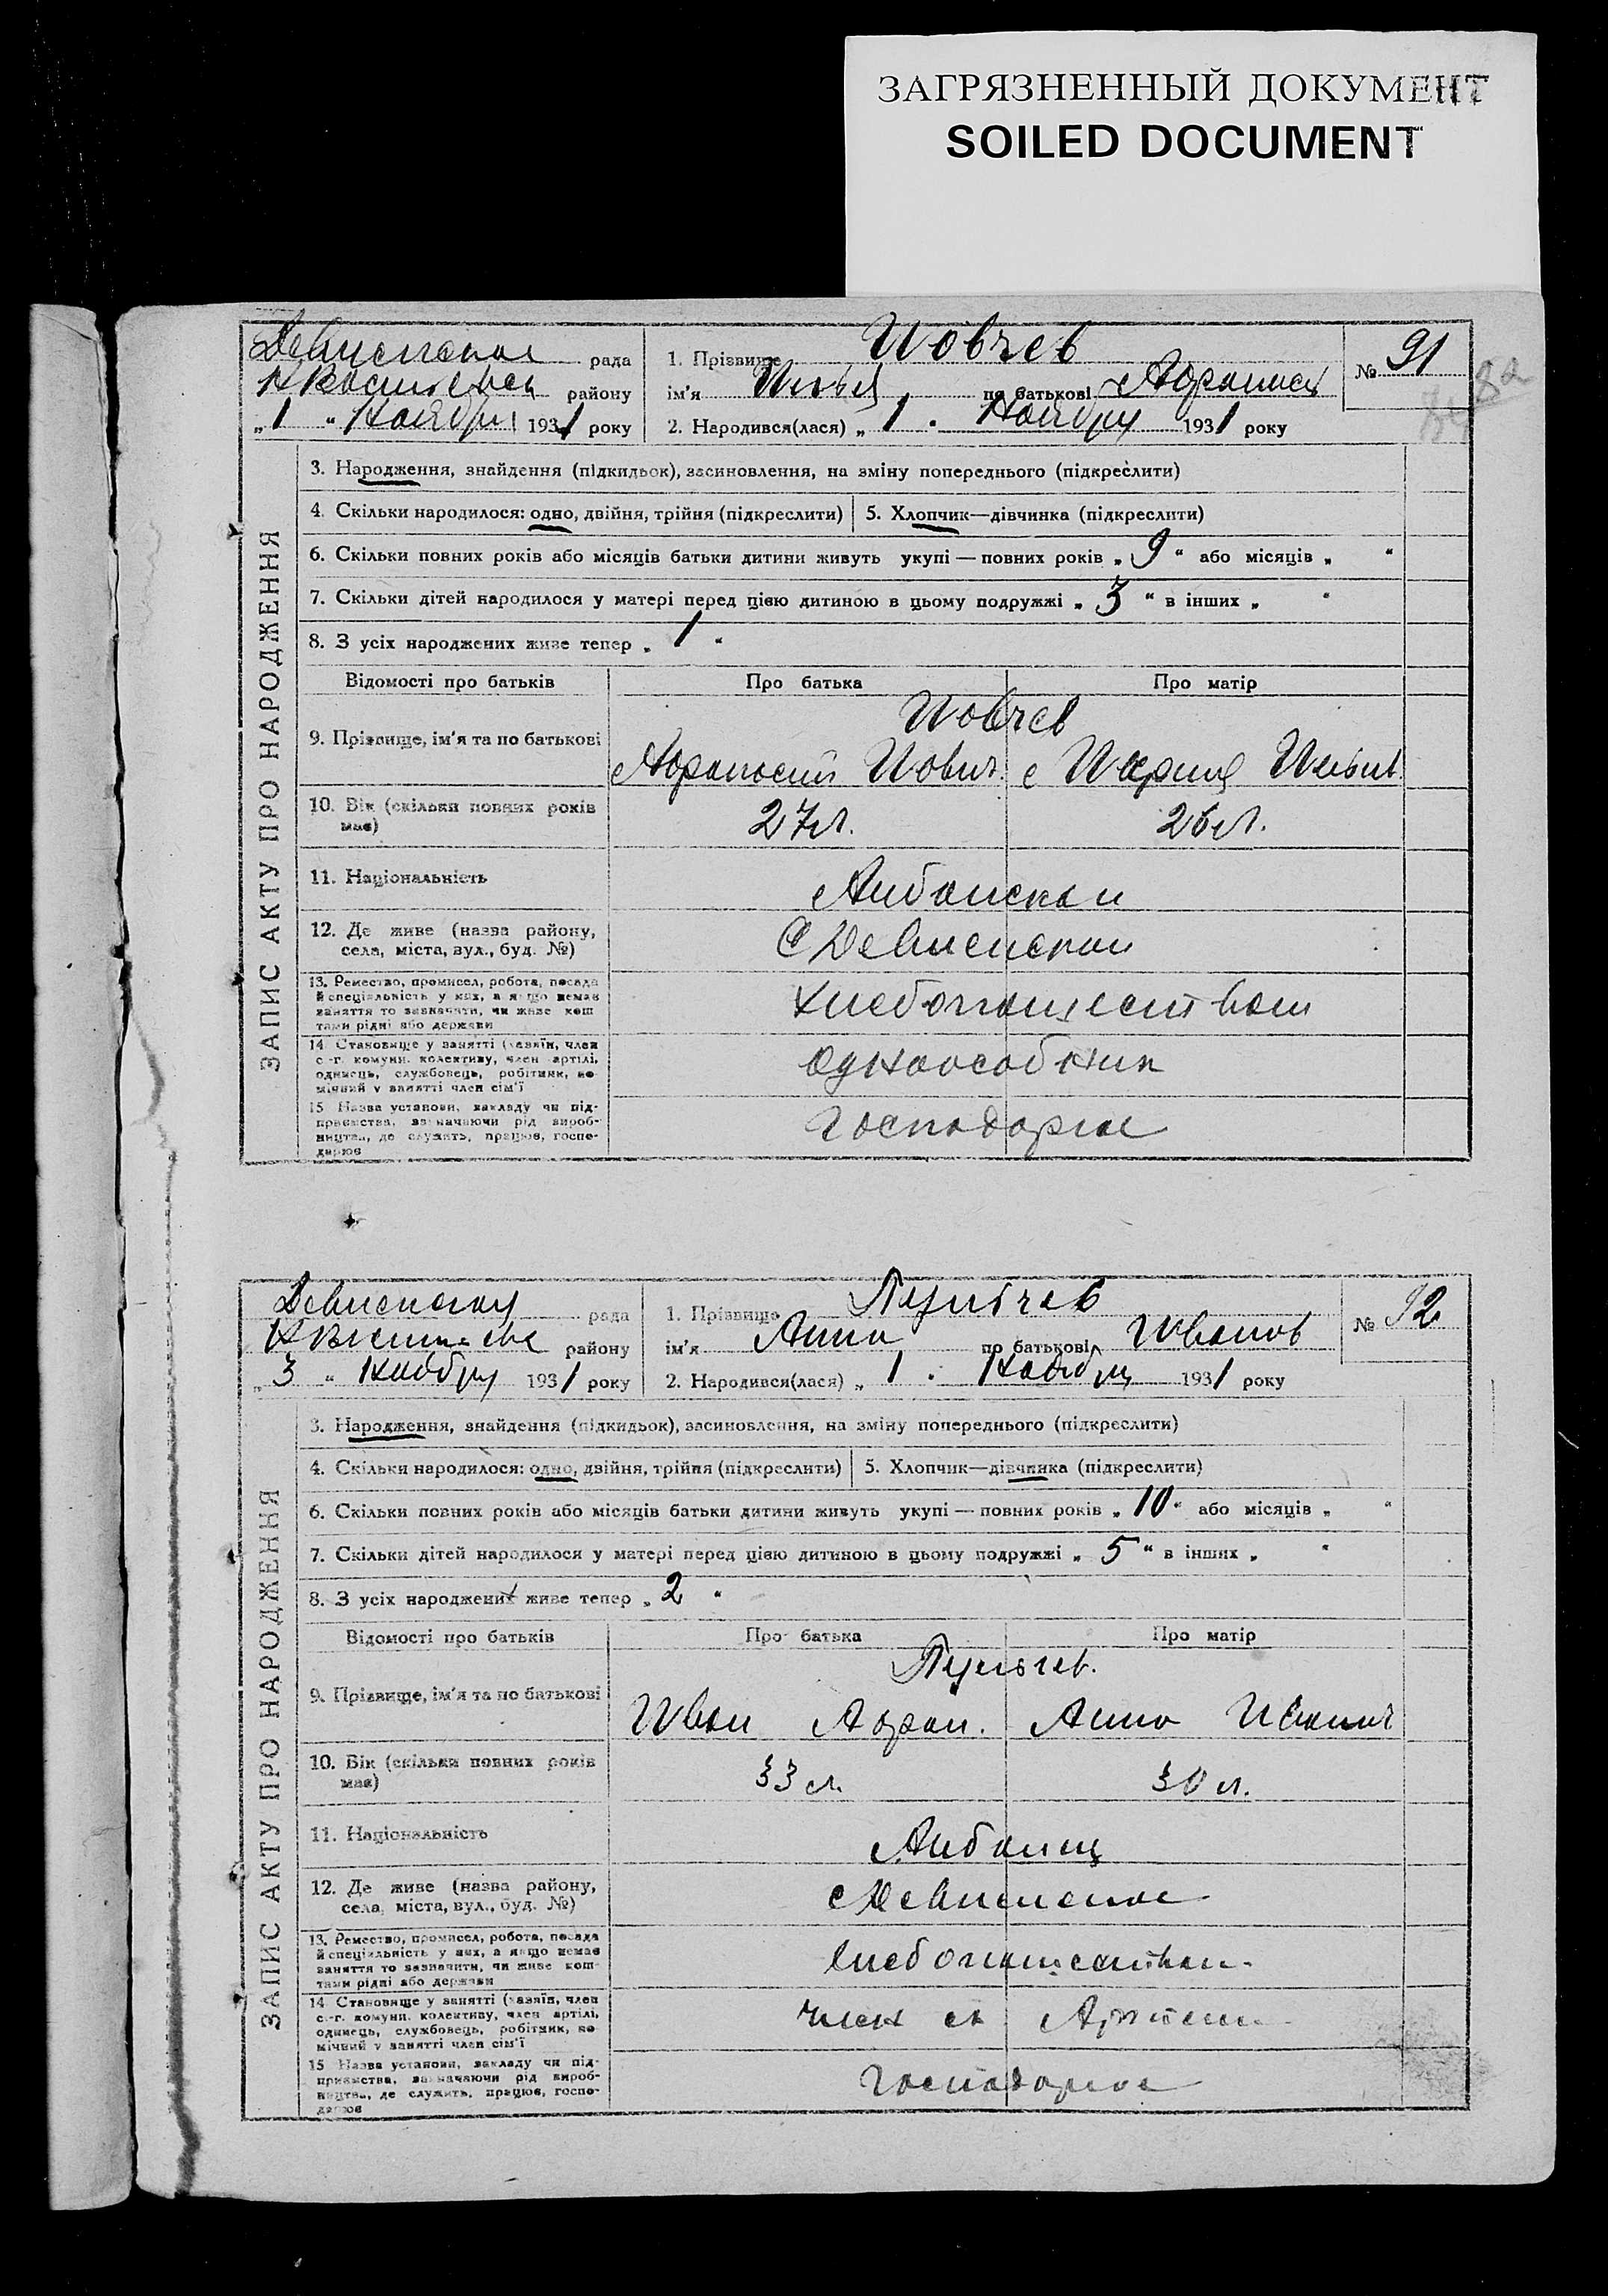 ЗАГРЯЗНЕННЫЙ ДОКУМЕНТ
SOILED DOCUMENT
Девненское рада
Н Васильевск району
„1 “ Ноября 1931 року
1. Прізвище Иовчев
ім'я Илья по батькові Афанась
2. Народився(лася) „ 1 . Ноября 1931 року
№ 91
ЗАПИС АКТУ ПРО НАРОДЖЕННЯ
3. Народження, знайдення (підкидьок), засиновлення, на зміну попереднього (підкреслити)
4. Скільки народилося: одно, двійня, трійня (підкреслити) 5. Хлопчик—дівчинка (підкреслити)
6. Скільки повних років або місяців батьки дитини живуть укупі — повних років „ 9 “ або місяців „ “
7. Скільки дітей народилося у матері перед цією дитиною в цьому подружжі „ 3 “ в інших „ “
8. З усіх народжених живе тепер „ 1 “
Відомості про батьків Про батька Про матір
9. Прізвище, ім'я та по батькові
Иовчев
Афанасий Иович. Мария Ильив.
10. Вік (скільки повних років має) 27 л. 26 л.
11. Національність Албанская
12. Де живе (назва району, села, міста, вул., буд. №) С
13. Ремество, промисел, робота, посада
й спеціяльність у них, а якщо немає
заняття то зазначити, чи живе кош
тами рідні або держави
Хлебопашеством
14 Становище у занятті (хазяїн, член
с.-г. комуни, колективу, член артілі,
одинець, службовець, робітник, по
мічний у занятті член сім'ї
Одноособник
15 Назва установи, закладу чи під-
приємства, зазначаючи рід вироб-
ництва, де служить, працює, госпо-
дарює
Господарює
рада
району
„ 3 “ Ноября 1931 року
1. Прізвище Пульчев
ім'я Анна по батькові Иванов
2. Народився(лася) „ 1 . Ноября 1931 року
№ 92
ЗАПИС АКТУ ПРО НАРОДЖЕННЯ
3. Народження, знайдення (підкидьок), засиновлення, на зміну попереднього (підкреслити)
4. Скільки народилося: одно, двійня, трійня (підкреслити) 5. Хлопчик—дівчинка (підкреслити)
6. Скільки повних років або місяців батьки дитини живуть укупі — повних років „ 10 “ або місяців „ “
7. Скільки дітей народилося у матері перед цією дитиною в цьому подружжі „ 5 “ в інших „ “
8. З усіх народжених живе тепер „ 2 “
Відомості про батьків Про батька Про матір
9. Прізвище, ім'я та по батькові
Пульчев.
Иван Афан. Анна Иванов
10. Вік (скільки повних років має) 33 л. 30 л.
11. Національність Албанц
12. Де живе (назва району, села, міста, вул., буд. №) с
13. Ремество, промисел, робота, посада
й спеціяльність у них, а якщо немає
заняття то зазначити, чи живе кош
тами рідні або держави
Хлебопашеством
14 Становище у занятті (хазяїн, член
с.-г. комуни, колективу, член артілі,
одинець, службовець, робітник, по
мічний у занятті член сім'ї
член Артели
15 Назва установи, закладу чи під-
приємства, зазначаючи рід вироб-
ництва, де служить, працює, госпо-
дарює
Господарює